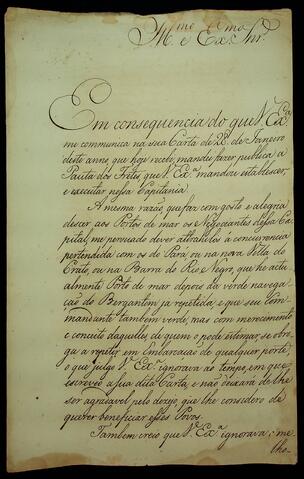 Illmo e Exmo Snr.
Em consequencia do que V. Exa
me communica na sua Carta de 28 de Janeiro
deste anno, que hoje recebo, mandei fazer publica a
Pauta dos Fretes que V. Exa mandou establescer,
e executar nessa Capitania.
A mesma razão que faz com gosto e alegria
descer aos Portos de mar os Negociantes dessa Ca-
pital, me persuado dever atrahillos à concurrencia
pertendida com os do Pará ou na nova Villa do
Crato, ou na Barra do Rio Negro, que he actu-
almente Porto de mar depois da verde navega-
ção do Bergantim ja repetida, e que seu com-
mandante tambem verde, mas com merecimento
e conceito daquelle de quem o pode estemar, se obri-
ga a repetir em Embarcação de qualquer porte,
o que julgo V. Exa ignorava ao tempo, em que
escreveo a sua dita Carta, e não deixará de lhe
ser agradavel pelo dezejo, que lhe considero de
querer beneficiar esses Povos.
Tambem creio que V. Exa ignorava, o me-
lho-